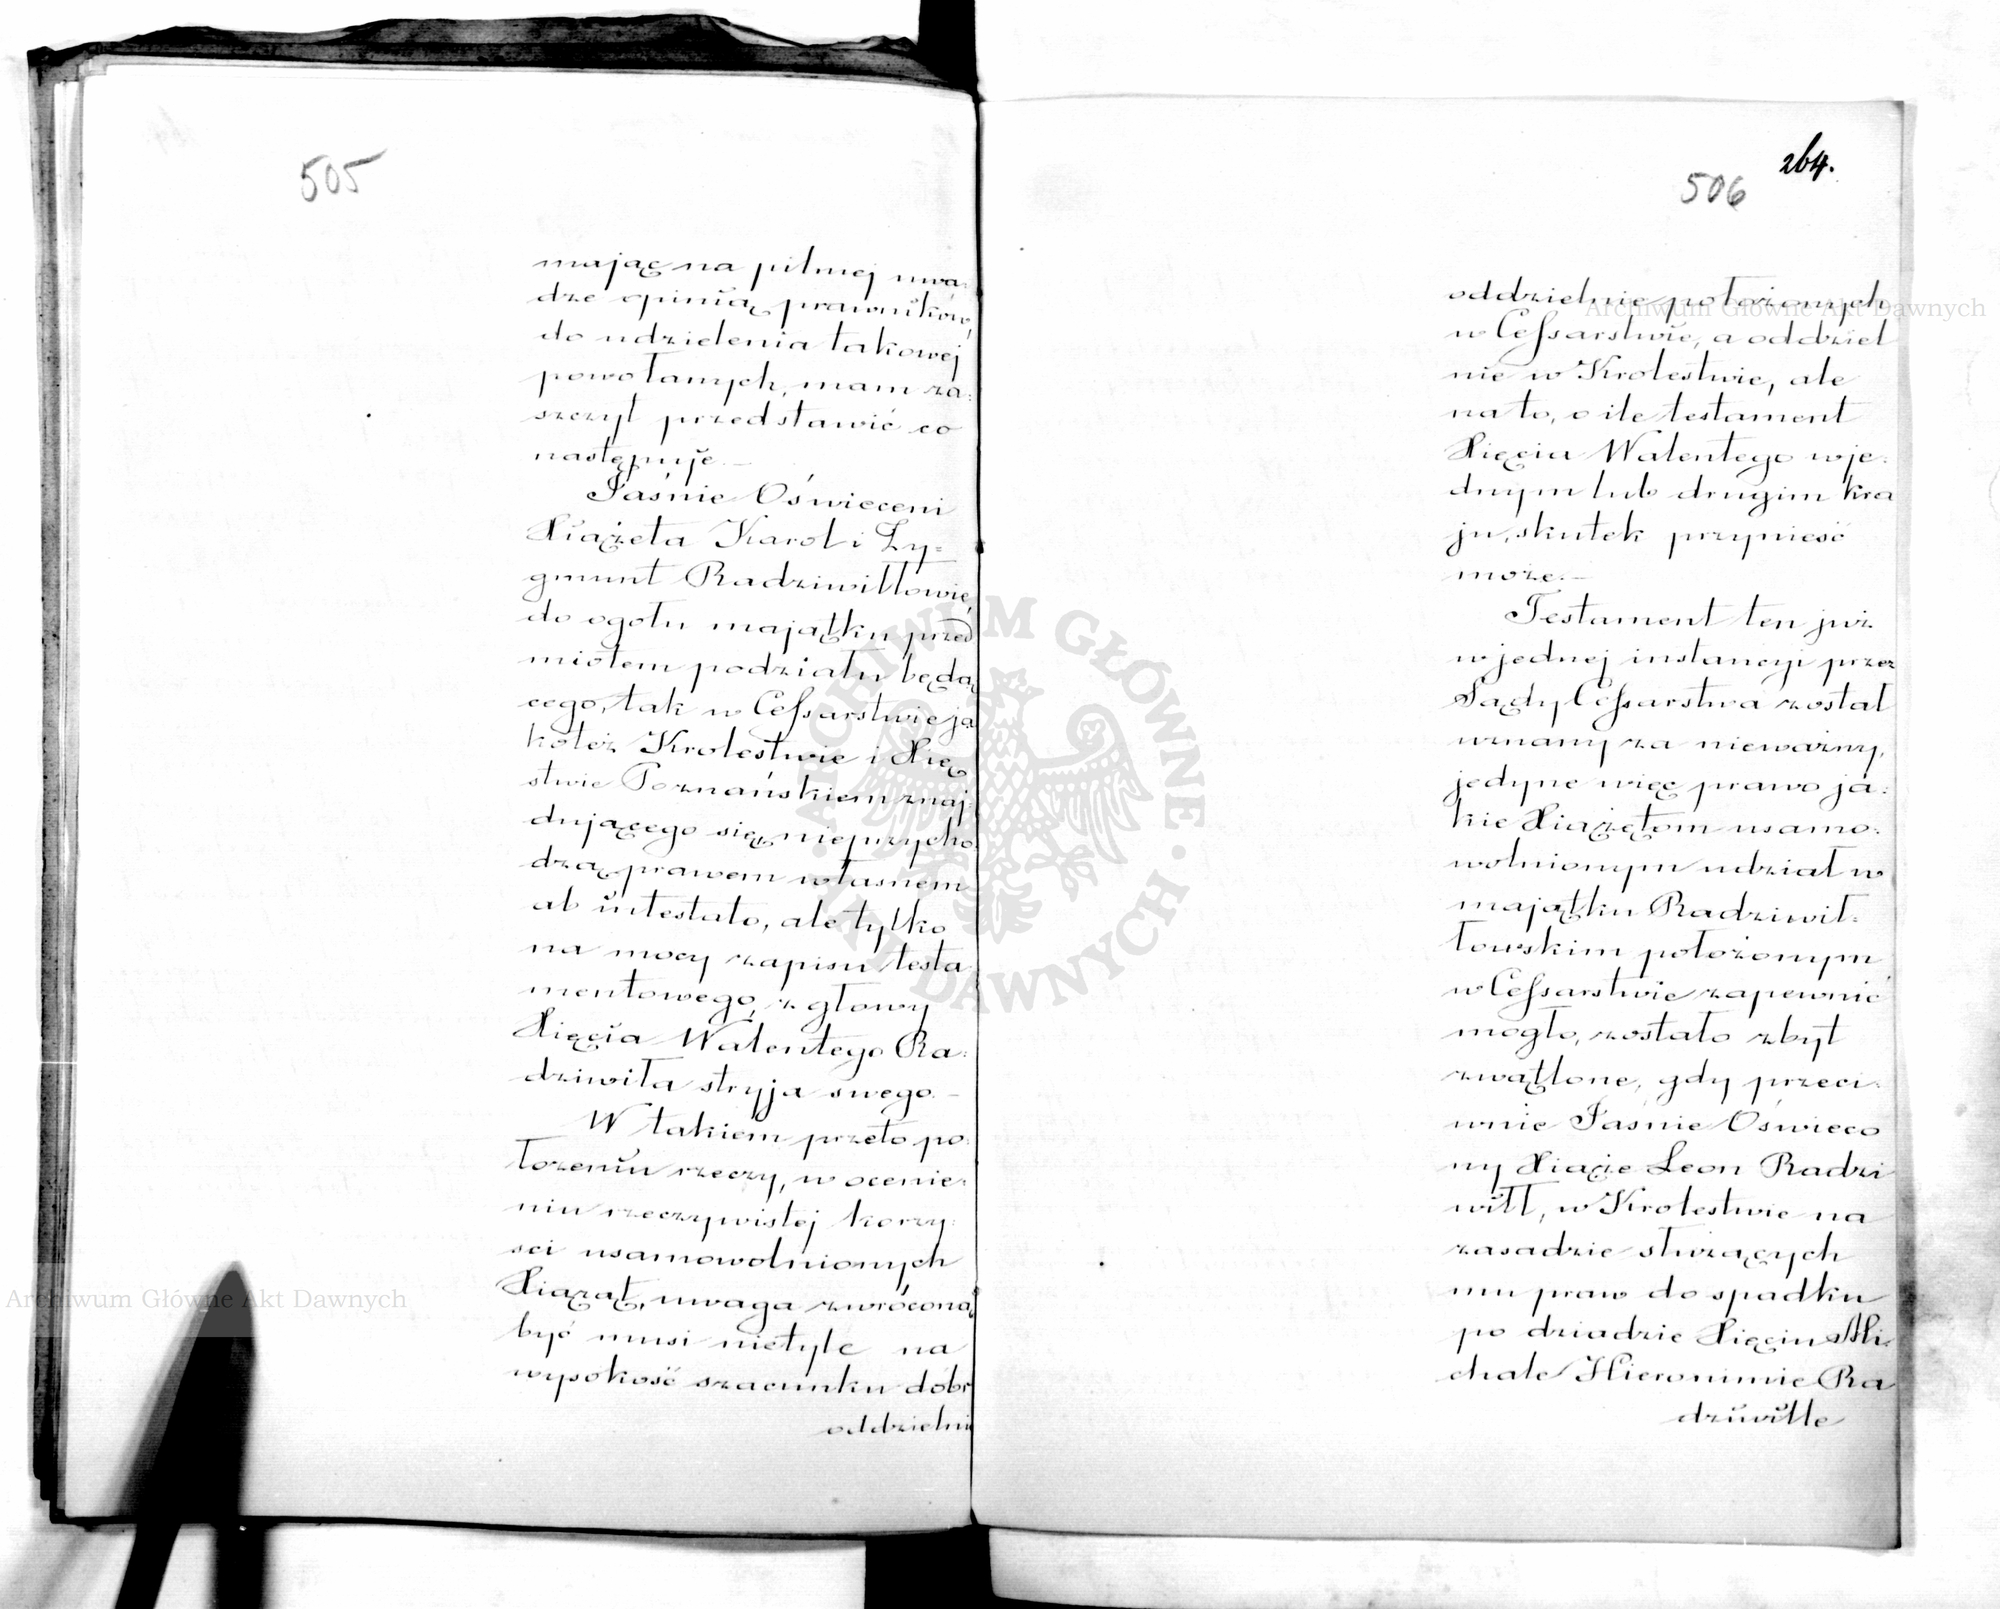 505
mając na pilnej uwa:
dze opinią prawników,
do udzielenia takowej
powołanych, mam za:
szczyt przedstawić co
następuje. —
Jaśnie Oświeceni
Xiążęta Karol i Zy:
gmunt Radziwiłłowie,
do ogołu majątku przed
miotem podziału będą
cego, tak w Cessarstwie ja
koteż Krolestwie i Xię
stwie Poznańskiem znaj:
dującego się, nieprzycho
dzą prawem własnem
ab intestato, ale tylko
na mocy zapisu testa
mentowego, z głowy
Xięcia Walentego Ra:
dziwiła stryja swego. —
W takiem przeto po:
łożeniu rzeczy, w ocenie:
niu rzeczywistej korzy:
sci usamowolnionych
Xiążąt, uwaga zwrócona
być musi nietyle na
wysokość szacunku dóbr
oddzielni
264.
506
oddzielnie położonych
w Cessarstwie, a oddziel
nie w Krolestwie, ale
na to, o ile testament
Xięcia Walentego w je:
dnym lub drugim kra
ju, skutek przynieść
może. —
Testament ten już
w jednej instancyi przez
Sądy Cessarstwa został
uznany za nieważny,
jedyne więc prawo ja:
kie Xiążętom usamo:
wolnionym udział w
majątku Radziwił:
łowskim położonym
w Cessarstwie zapewnić
mogło, zostało zbyt
zwątlone, gdy przeci:
wnie Jaśnie Oświeco
ny Xiąże Leon Radzi
wiłł, w Krolestwie na
zasadzie służących
mu praw do spadku
po dziadzie Xięciu Mi:
chale Hieronimie Ra
dziwille
Archiwum Główne Akt Dawnych
Archiwum Główne Akt Dawnych
ARCHIWUM GŁÓWNE · AKT DAWNYCH ·